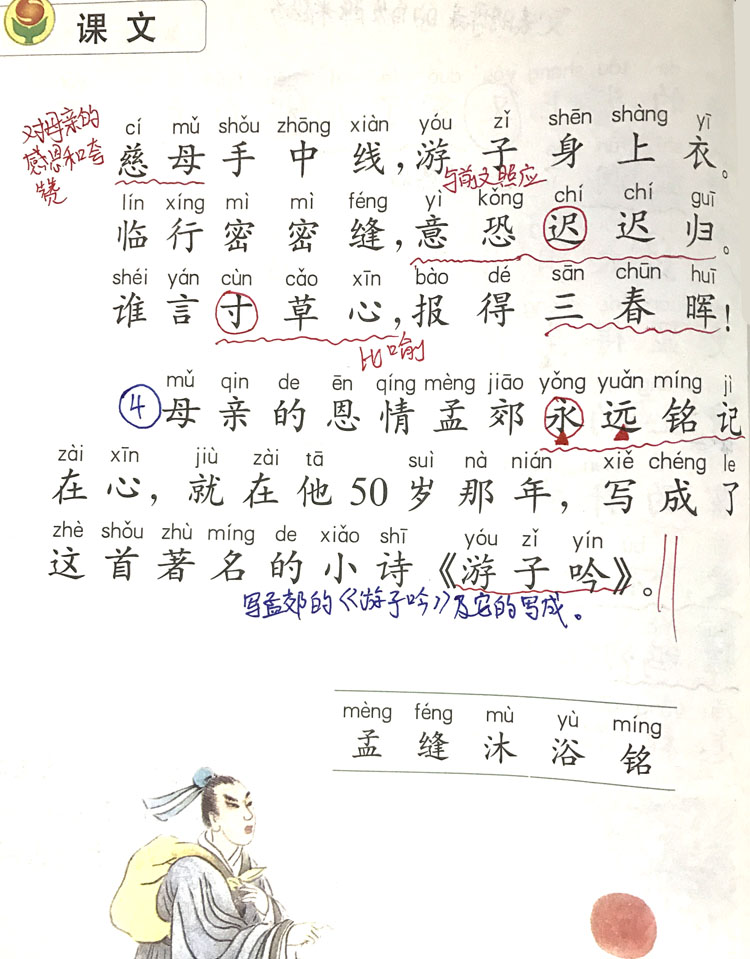 课文
对母亲的
感恩和夸
赞
cí mǔ shǒu zhōng xiàn yóu zǐ shēn shàng yī
慈母手中线,游子身上衣。
与前文照应
lín xíng mì mì féng yì kǒng chí chí guī
临行密密缝,意恐迟迟归。
shéi yán cùn cǎo xīn bào dé sān chūn huī
谁言寸草心,报得三春晖!
比喻
mǔ qin de ēn qíng mèng jiāo yǒng yuǎn míng jì
④母亲的恩情孟郊永远铭记
zài xīn jiù zài tā suì nà nián xiě chéng le
在心,就在他50岁那年,写成了
zhè shǒu zhù míng de xiǎo shī yóu zǐ yín
这首著名的小诗《游子吟》。
写孟郊的《游子吟》及它的写成。
mèng féng mù yù míng
孟缝沐浴铭